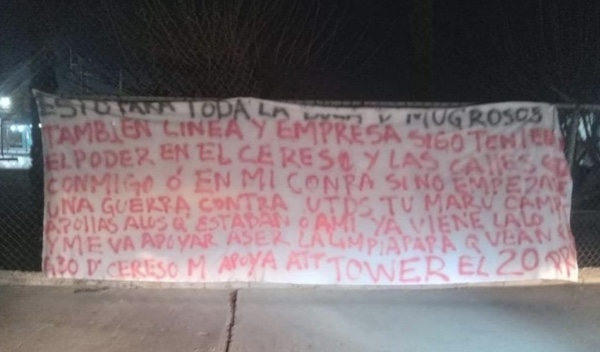 ESTO PARA TODA LA D MUGROSOS
TAMBIEN LINEA Y EMPRESA SIGO TENIEN
EL PODER EN EL CERESO Y LAS CALLES
CONMIGO Ó EN MI CONRA SI NO EMPEZAR
UNA GUERRA CONTRA UTDS, TU MARU CAMP
APOLLAS ALOS Q ESTABAN O AMI YA VIENE LALO
Y ME VA APOYAR ASER LA LIMPIA PAPA Q VEAN Q
D CERESO M APOYA ATT TOWER EL 20